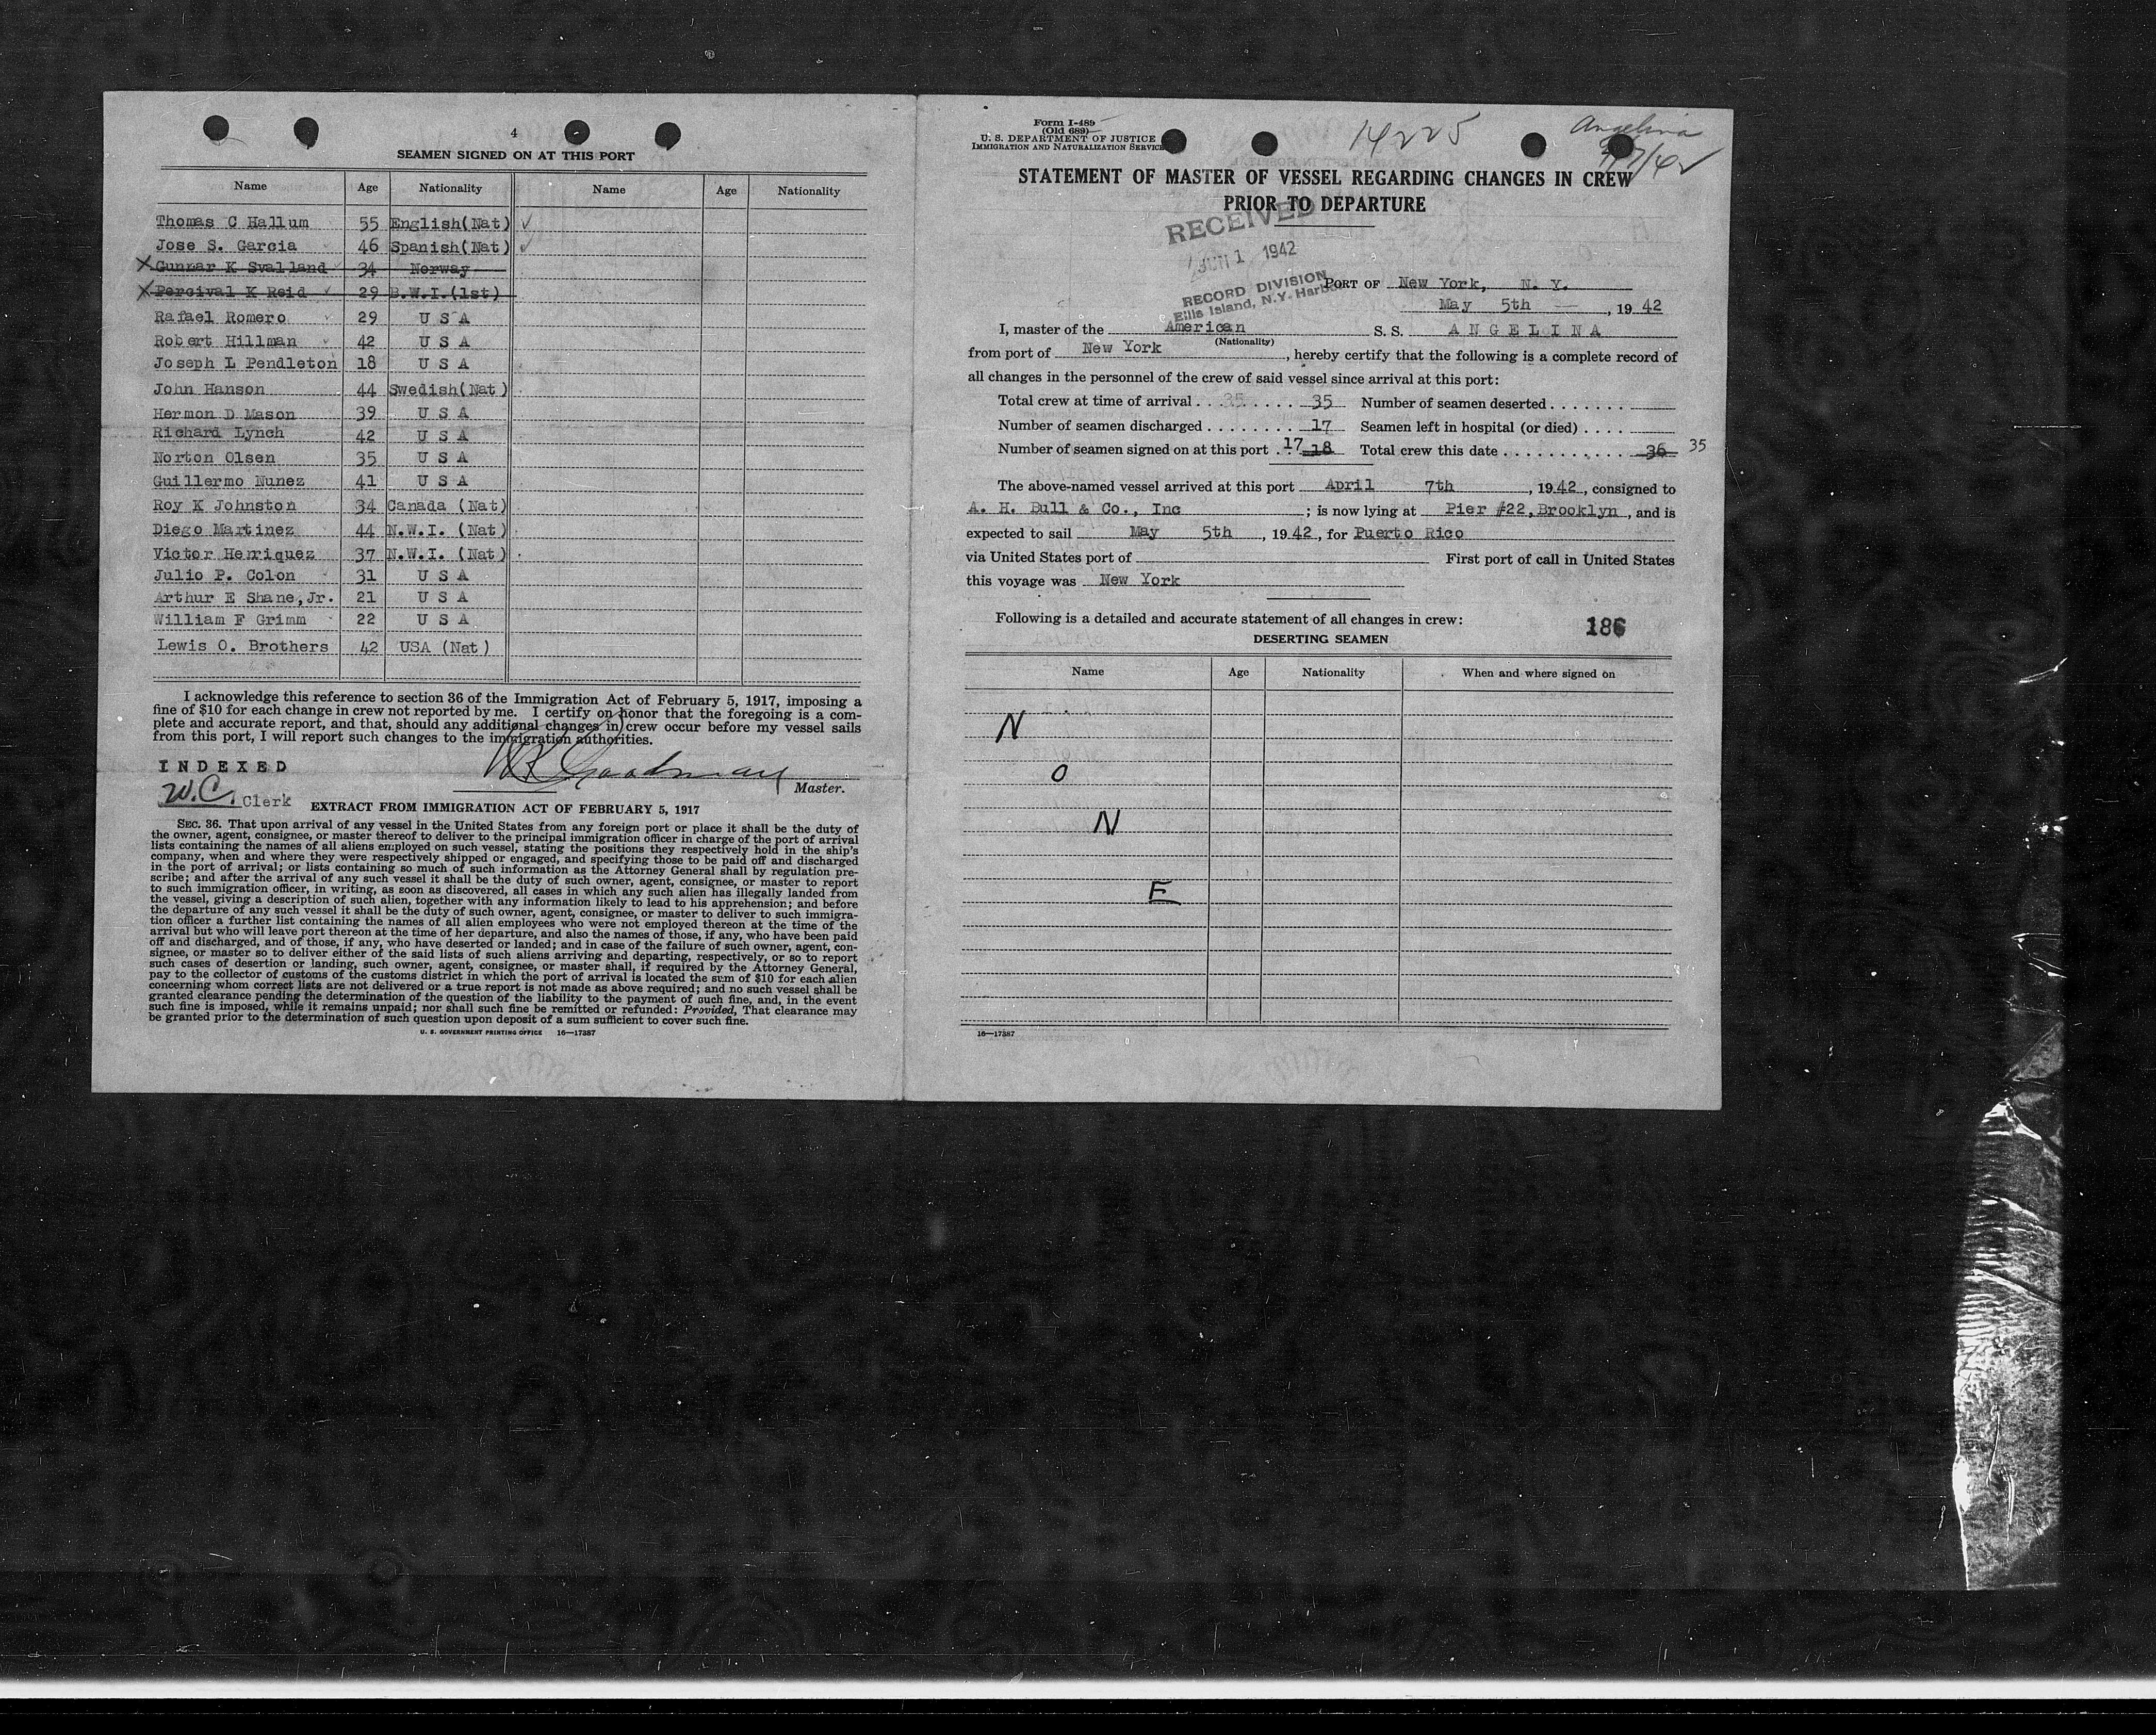 4
SEAMEN SIGNED ON AT THIS PORT
Name Age Nationality Name Age Nationality
Thomas C Hallum 55 English(Nat) ✓
Jose S. Garcia 46 Spanish(Nat) ✓
X Gunnar K Svalland 34 Norway
X Percival K Reid 29 B.W.I.(1st)
Rafael Romero 29 U S A
Robert Hillman 42 U S A
Joseph L Pendleton 18 U S A
John Hanson 44 Swedish(Nat)
Hermon D Mason 39 U S A
Richard Lynch 42 U S A
Norton Olsen 35 U S A
Guillermo Nunez 41 U S A
Roy K Johnston 34 Canada (Nat)
Diego Martinez 44 N.W.I. (Nat)
Victor Henriquez 37 N.W.I. (Nat)
Julio P. Colon 31 U S A
Arthur E Shane,Jr. 21 U S A
William F Grimm 22 U S A
Lewis O. Brothers 42 USA (Nat)
I acknowledge this reference to section 36 of the Immigration Act of February 5, 1917, imposing a
fine of $10 for each change in crew not reported by me. I certify on honor that the foregoing is a com-
plete and accurate report, and that, should any additional changes in crew occur before my vessel sails
from this port, I will report such changes to the immigration authorities.
INDEXED
Goodman
Master.
W.C. Clerk
EXTRACT FROM IMMIGRATION ACT OF FEBRUARY 5, 1917
SEC. 36. That upon arrival of any vessel in the United States from any foreign port or place it shall be the duty of
the owner, agent, consignee, or master thereof to deliver to the principal immigration officer in charge of the port of arrival
lists containing the names of all aliens employed on such vessel, stating the positions they respectively hold in the ship's
company, when and where they were respectively shipped or engaged, and specifying those to be paid off and discharged
in the port of arrival; or lists containing so much of such information as the Attorney General shall by regulation pre-
scribe; and after the arrival of any such vessel it shall be the duty of such owner, agent, consignee, or master to report
to such immigration officer, in writing, as soon as discovered, all cases in which any such alien has illegally landed from
the vessel, giving a description of such alien, together with any information likely to lead to his apprehension; and before
the departure of any such vessel it shall be the duty of such owner, agent, consignee, or master to deliver to such immigra-
tion officer a further list containing the names of all alien employees who were not employed thereon at the time of the
arrival but who will leave port thereon at the time of her departure, and also the names of those, if any, who have been paid
off and discharged, and of those, if any, who have deserted or landed; and in case of the failure of such owner, agent, con-
signee, or master so to deliver either of the said lists of such aliens arriving and departing, respectively, or so to report
such cases of desertion or landing, such owner, agent, consignee, or master shall, if required by the Attorney General,
pay to the collector of customs of the customs district in which the port of arrival is located the sum of $10 for each alien
concerning whom correct lists are not delivered or a true report is not made as above required; and no such vessel shall be
granted clearance pending the determination of the question of the liability to the payment of such fine, and, in the event
such fine is imposed, while it remains unpaid; nor shall such fine be remitted or refunded: Provided, That clearance may
be granted prior to the determination of such question upon deposit of a sum sufficient to cover such fine.
U. S. GOVERNMENT PRINTING OFFICE 16—17387
Form I-489
(Old 689)
U. S. DEPARTMENT OF JUSTICE
IMMIGRATION AND NATURALIZATION SERVICE
14225
Angelina
STATEMENT OF MASTER OF VESSEL REGARDING CHANGES IN CREW
PRIOR TO DEPARTURE
RECEIVED
JUN 1 1942
RECORD DIVISION
Ellis Island, N.Y. Harbor
PORT OF New York, N. Y.
May 5th, 19 42
I, master of the American S. S. ANGELINA
(Nationality)
from port of New York, hereby certify that the following is a complete record of
all changes in the personnel of the crew of said vessel since arrival at this port:
Total crew at time of arrival . . 35 . . . . . 35 Number of seamen deserted . . . . . . .
Number of seamen discharged . . . . . . . . 17 Seamen left in hospital (or died) . . . .
Number of seamen signed on at this port . 17 18 Total crew this date . . . . . . . . . . . . 36 35
The above-named vessel arrived at this port April 7th, 19 42, consigned to
A. H. Bull & Co., Inc ; is now lying at Pier #22, Brooklyn, and is
expected to sail May 5th, 19 42, for Puerto Rico
via United States port of First port of call in United States
this voyage was New York
Following is a detailed and accurate statement of all changes in crew:
186
DESERTING SEAMEN
Name Age Nationality When and where signed on
N
O
N
E
16—17387